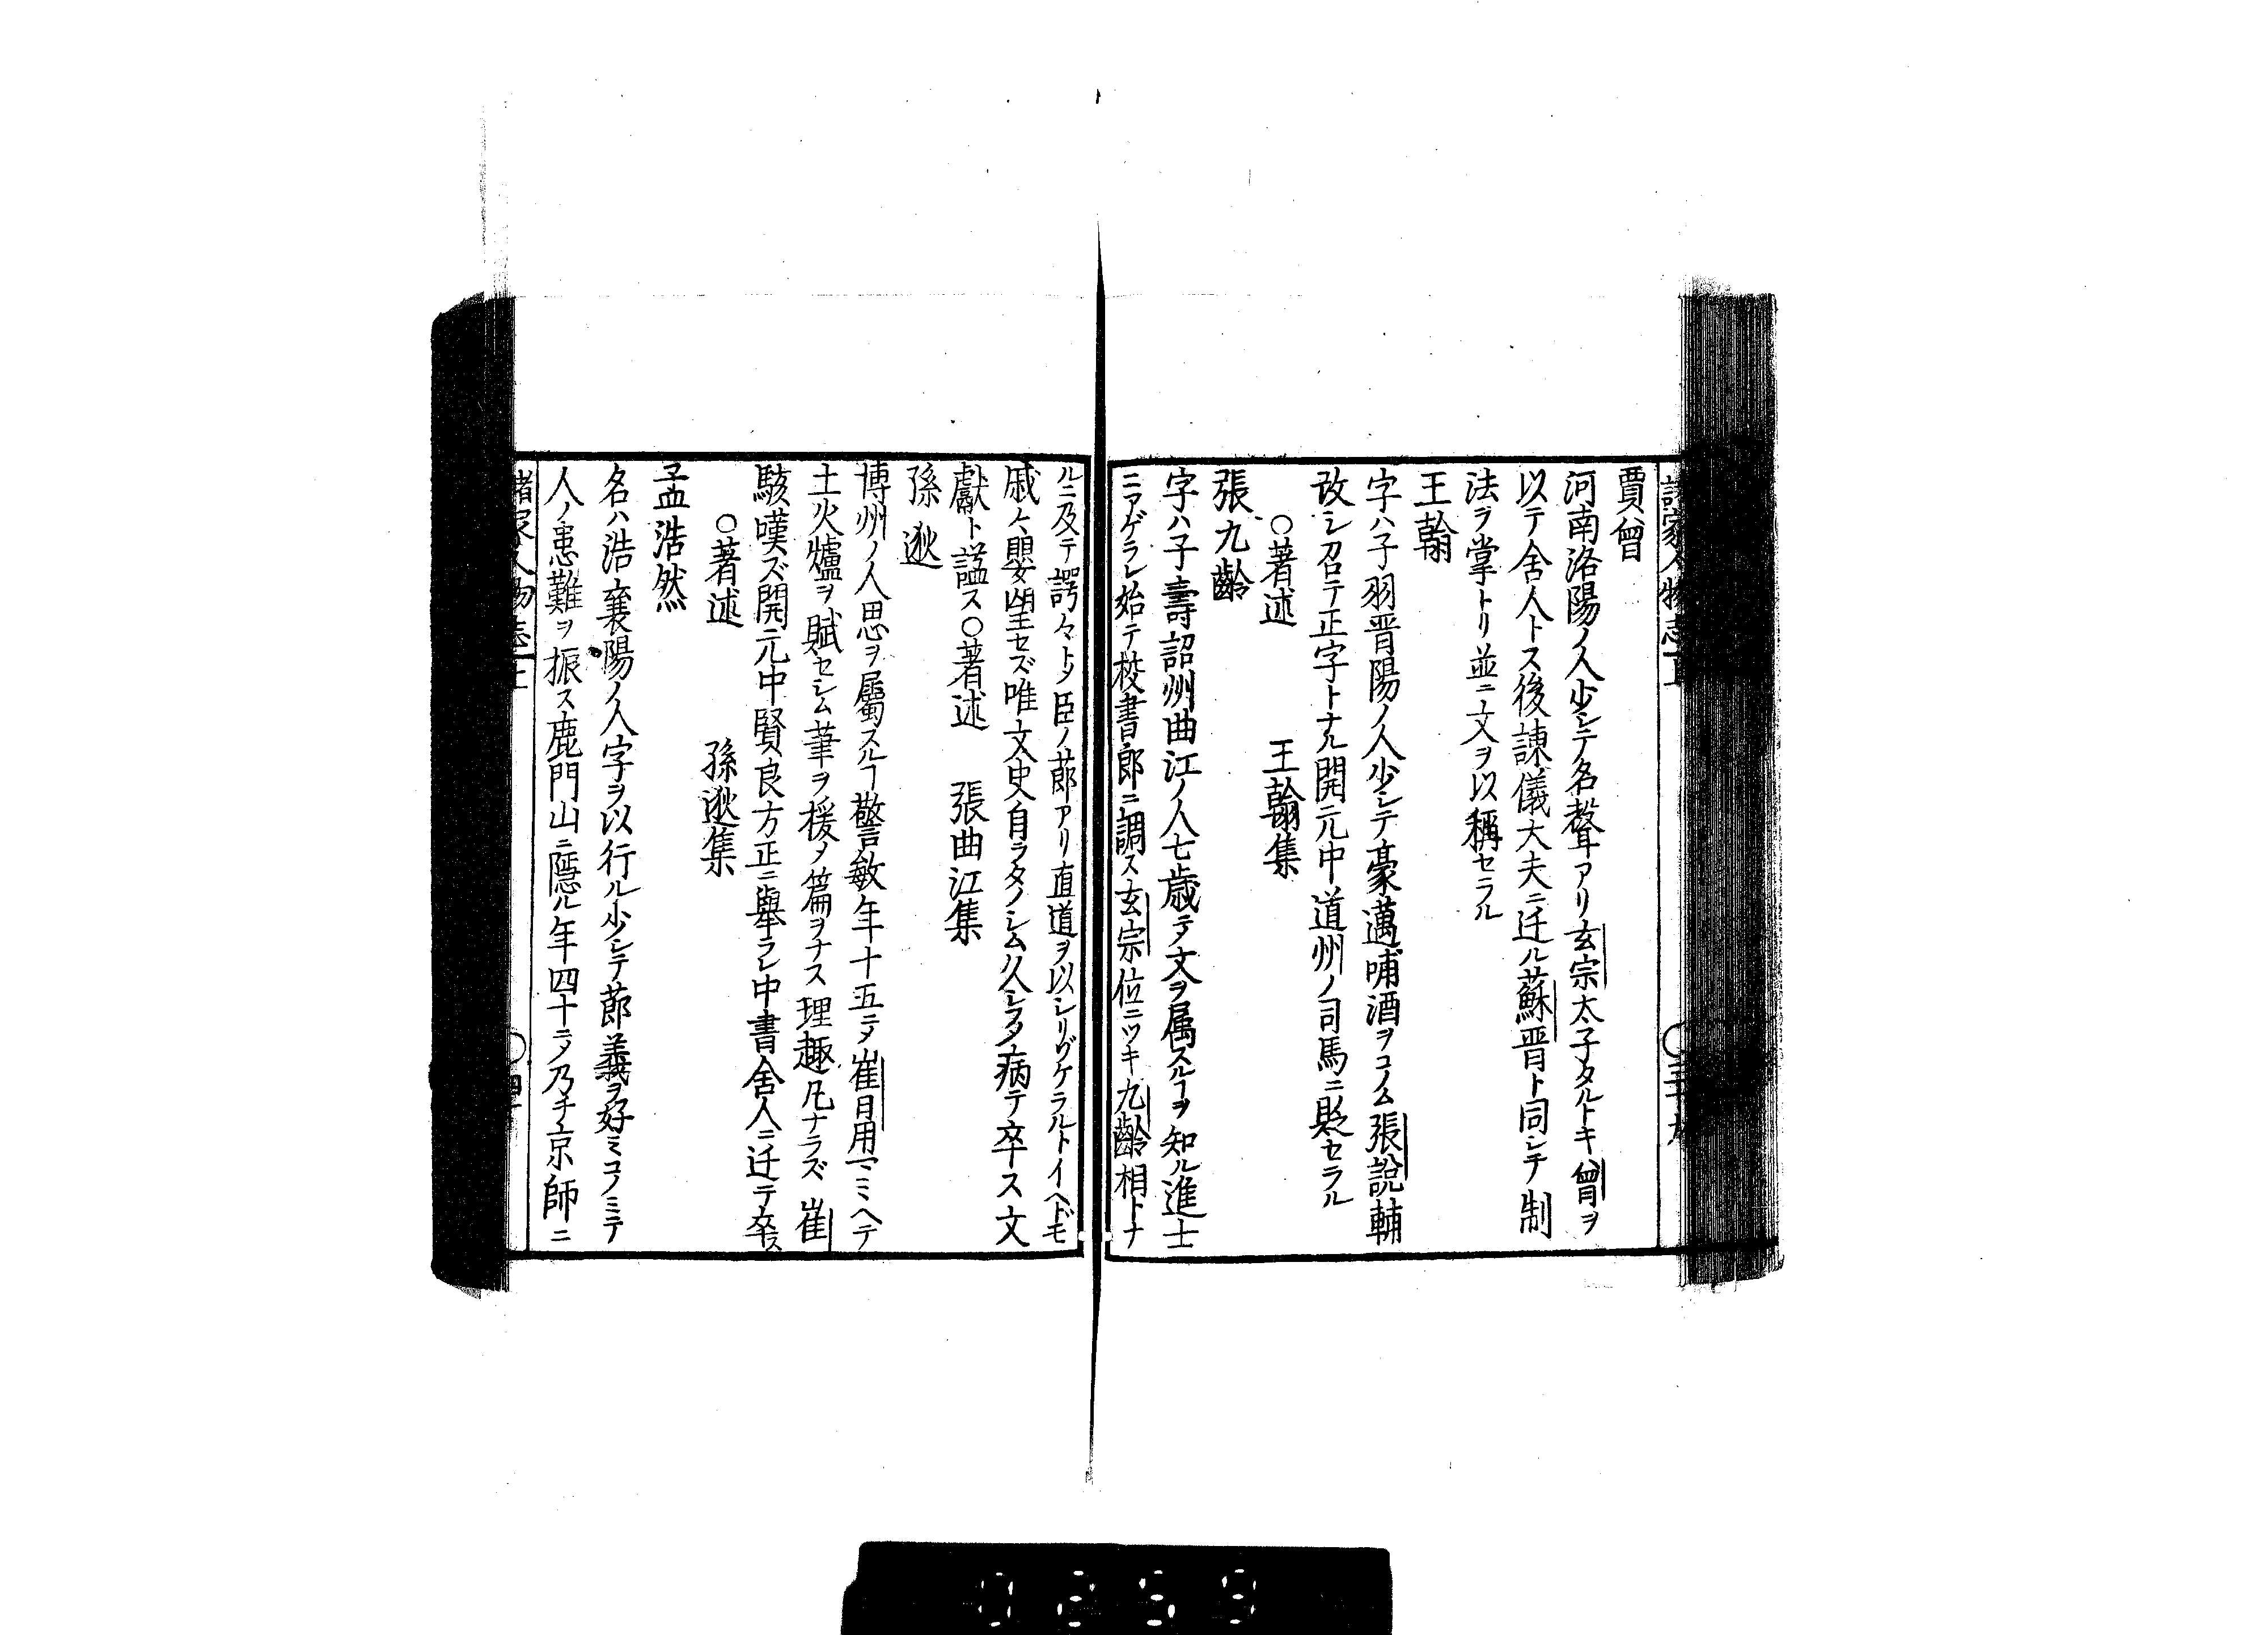 賈曾
河南洛陽ノ人少シテ名聲アリ玄宗太子タルトキ曾ヲ
以テ舍人トス後諫儀大夫ニ迁ル蘇晋ト同シテ制
法ヲ掌トリ並ニ文ヲ以稱セラル
王翰
字ハ子羽晋陽ノ人少シテ豪邁哺酒ヲコノム張說輔
政シ召テ正字トナル開元中道州ノ司馬ニ貶セラル
○著述 王翰集
張九齡
字ハ子壽詔州曲江ノ人七歳ニテ文ヲ属スルヿヲ知ル進士
ニアゲラレ始テ校書郎ニ調ス玄宗位ニツキ九齡相トナ
ルニ及テ諤々トメ臣ノ莭アリ直道ヲ以シリゾケラルトイヘドモ
戚々嬰望セズ唯文史自ラタノシム久シフメ病テ卒ス文
獻ト諡ス○著述 張曲江集
孫逖
博州ノ人思ヲ屬スルヿ警敏年十五ニメ崔日用ニミヘテ
土火爐ヲ賦セシム筆ヲ援メ篇ヲナス理趣凡ナラズ崔
駭嘆ズ開元中賢良方正ニ舉ラレ中書舍人ニ迁テ卒ス
○著述 孫逖集
孟浩然
名ハ浩襄陽ノ人字ヲ以行ル少シテ莭義ヲ好ミコノミテ
人ノ患難ヲ振ス鹿門山ニ隱ル年四十ニメ乃チ京師ニ